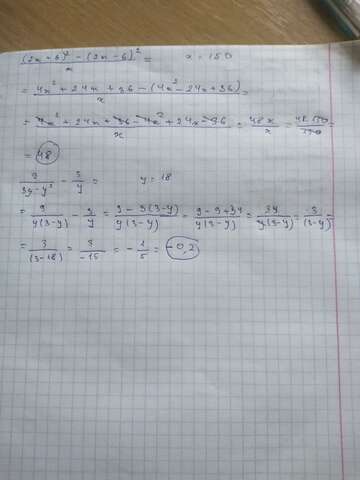 (2x+6)² - (2x-6)² / x = x = 150
= 4x² + 24x + 36 - (4x² - 24x + 36) / x =
= 4x² + 24x + 36 - 4x² + 24x - 36 / x = 48x / x = 48·150 / 150 =
= 48
9 / 3y - y² - 3 / y = y = 18
= 9 / y(3-y) - 3 / y = 9 - 3(3-y) / y(3-y) = 9 - 9 + 3y / y(3-y) = 3y / y(3-y) = 3 / (3-y) =
= 3 / (3-18) = 3 / -15 = - 1 / 5 = -0,2